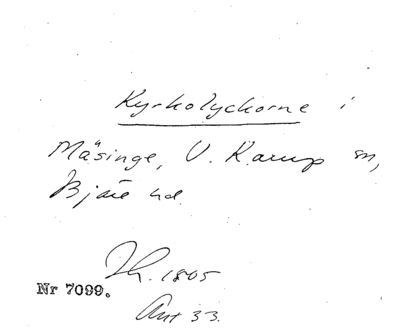 Kyrkolyckorne i
Mäsinge, V. Karup sn,
Bjäre hd.
Th. 1805
Nr 7099.
Ant 33.